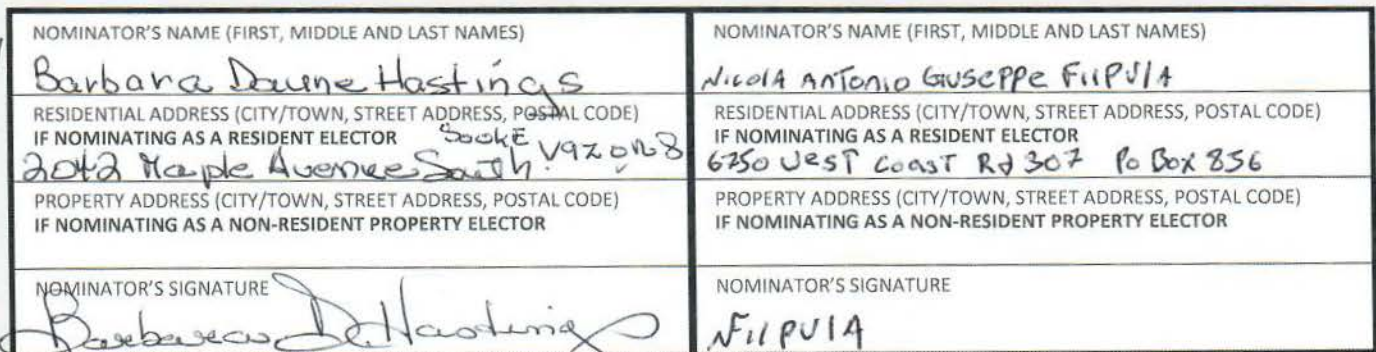 NOMINATOR'S NAME (FIRST, MIDDLE AND LAST NAMES)
Barbara Daune Hastings
RESIDENTIAL ADDRESS (CITY/TOWN, STREET ADDRESS, POSTAL CODE)
IF NOMINATING AS A RESIDENT ELECTOR SOOKE
2042 Maple Avenue South. V9Z 0N8
PROPERTY ADDRESS (CITY/TOWN, STREET ADDRESS, POSTAL CODE)
IF NOMINATING AS A NON-RESIDENT PROPERTY ELECTOR
NOMINATOR'S SIGNATURE
Barbara D Hastings
NOMINATOR'S NAME (FIRST, MIDDLE AND LAST NAMES)
NICOLA ANTONIO GIUSEPPE FILPULA
RESIDENTIAL ADDRESS (CITY/TOWN, STREET ADDRESS, POSTAL CODE)
IF NOMINATING AS A RESIDENT ELECTOR
6750 WEST COAST Rd 307 Po Box 856
PROPERTY ADDRESS (CITY/TOWN, STREET ADDRESS, POSTAL CODE)
IF NOMINATING AS A NON-RESIDENT PROPERTY ELECTOR
NOMINATOR'S SIGNATURE
N FILPULA